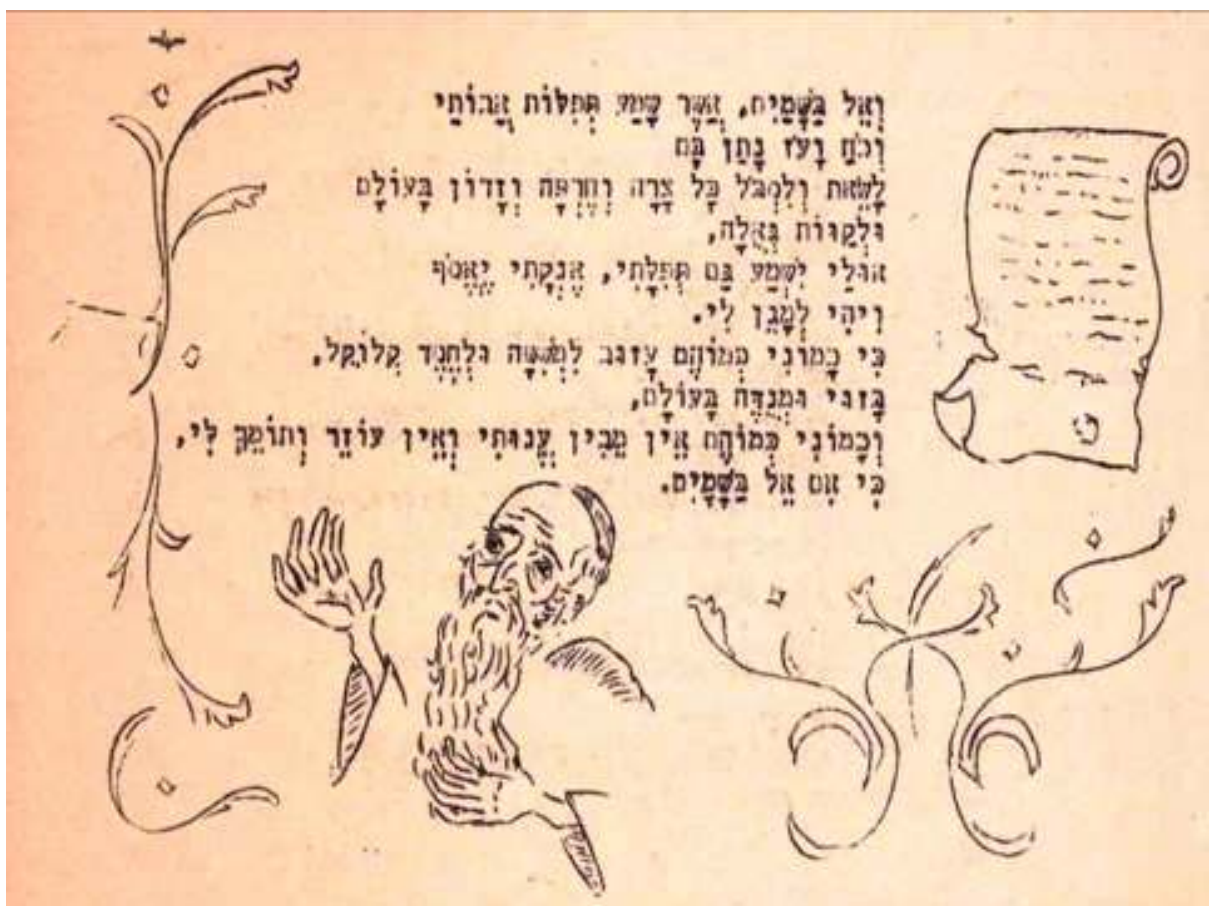 וְאֵל בַּשָּׁמַיִם, אֲשֶׁר שָׁמַע תְּפִלּוֹת אֲבוֹתַי
וְכֹחַ וָעֹז נָתַן בָּם
לָשֵׂאת וְלִסְבֹּל כָּל צָרָה וְחֶרְפָּה וְזָדוֹן בָּעוֹלָם
וּלְקַוּוֹת גְּאֻלָּה,
אוּלַי יִשְׁמַע גַּם תְּפִלָּתִי, אֶנְקָתִי יֶאֱסֹף
וִיהִי לְמָגֵן לִי.
כִּי כָמוֹנִי כְּמוֹהֶם עָזוּב לִמְשִׁסָּה וּלְחֶסֶד קְלוֹקֵל,
בָּזוּי וּמְנֻדֶּה בָּעוֹלָם,
וְכָמוֹנִי כְּמוֹהֶם אֵין מֵבִין עֱנוּתִי וְאֵין עוֹזֵר וְתוֹמֵךְ לִי,
כִּי אִם אֵל בַּשָּׁמָיִם.